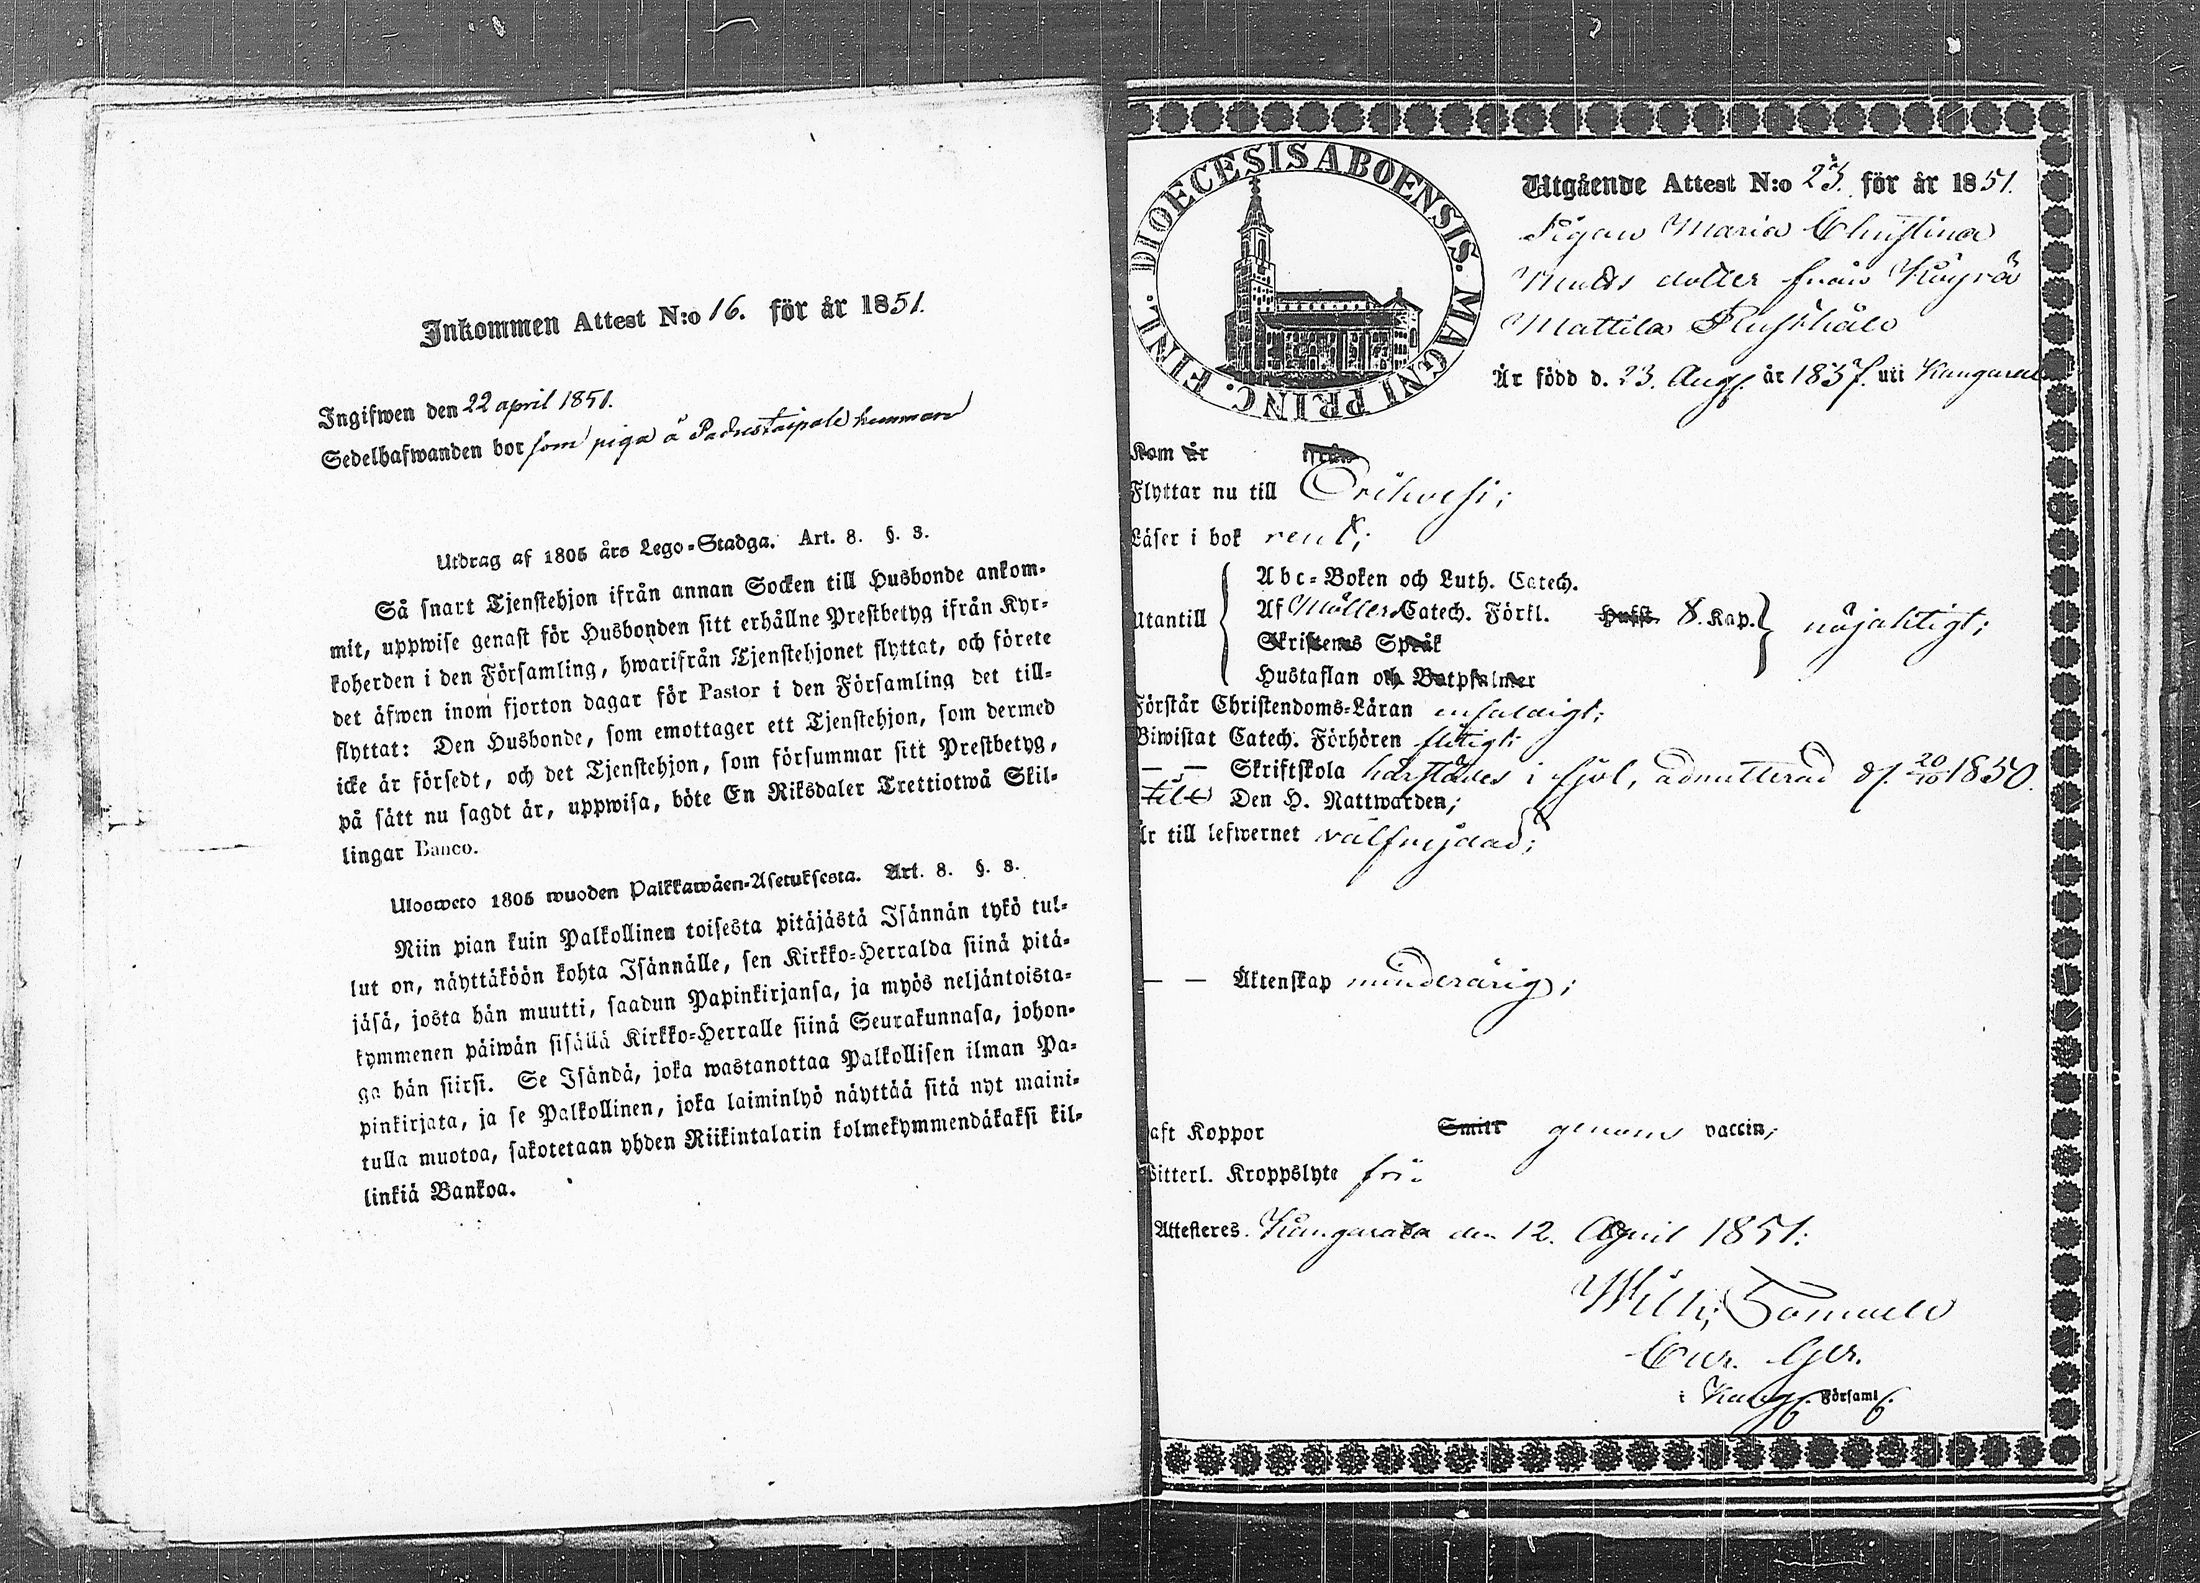 Inkommen Attest N:o 16. för år 1851.
Ingifwen den 22 april 1851.
Sedelhafwanden bor som piga å Padustaipale hemman
Utdrag af 1805 års Lego-Stadga. Art. 8. §. 3.
Så snart Tjenstehjon ifrån annan Socken till Husbonde ankom-
mit, uppwise genast för Husbonden sitt erhållne Prestbetyg ifrån Kyr-
koherden i den Församling, hwarifrån Tjenstehjonet flyttat, och förete
det äfwen inom fjorton dagar för Pastor i den Församling det till-
flyttat: Den Husbonde, som emottager ett Tjenstehjon, som dermed
icke är försedt, och det Tjenstehjon, som försummar sitt Prestbetyg,
på sätt nu sagdt är, uppwisa, böte En Riksdaler Trettiotwå Skil-
lingar Banco.
Ulosweto 1805 wuoden Palkkawäen-Asetuksesta. Art. 8. §. 3.
Niin pian kuin Palkollinen toisesta pitäjästä Isännän tykö tul-
lut on, näyttäköön kohta Isännälle, sen Kirkko-Herralda siinä pitä-
jäsä, josta hän muutti, saadun Papinkirjansa, ja myös neljäntoista-
kymmenen päiwän sisällä Kirkko-Herralle siinä Seurakunnasa, johon-
ga hän siirsi. Se Isändä, joka wastanottaa Palkollisen ilman Pa-
pinkirjata, ja se Palkollinen, joka laiminlyö näyttää sitä nyt maini-
tulla muotoa, sakotetaan yhden Riikintalarin kolmekymmendäkaksi kil-
linkiä Bankoa.
DIOECESIS ABOENSIS. MAGNI PRINC. FINL.
Utgående Attest N:o 23. för år 1851.
Pigan Maria Christina
Matts dotter från Kuyrö
Mattila Rusthåll
Är född d. 23. Aug. år 1837. uti Kangasala
Kom år ifrån
Flyttar nu till Orihvesi;
Läser i bok rent;
Utantill
Abc-Boken och Luth. Catech.
Af Möllers Catech. Förkl. Hufst. 8. Kap. nöjaktigt;
Skriftenes Språk
Hustaflan och Botpsalmer
Förstår Christendoms-Läran enfaldigt;
Biwistat Catech. Förhören flitigt;
— — Skriftskola härstädes i fjol, admitterad d. 20/10 1850.
till Den H. Nattwarden;
Är till lefwernet välfrejdad;
— — Äktenskap minderårig;
aft Koppor Smitt genom vaccin;
itterl. Kroppslyte fri.
Attesteres. Kangasala den 12. April 1851.
Wilh. Tomuell
i Kang. Församl.